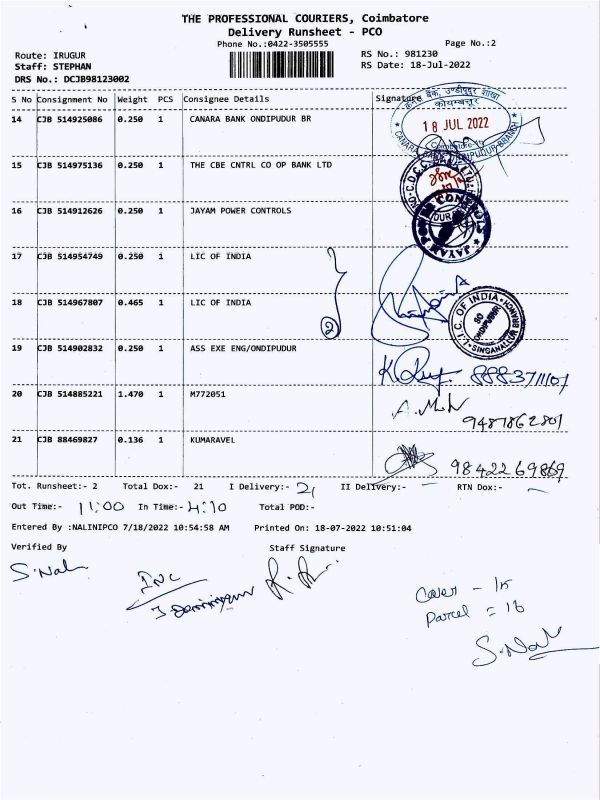 THE PROFESSIONAL COURIERS, Coimbatore
Delivery Runsheet - PCO
Phone No.:0422-3505555
Page No.:2
Route: IRUGUR
RS No.: 981230
Staff: STEPHAN
RS Date: 18-Jul-2022
DRS No.: DCJB98123002
S No Consignment No Weight PCS Consignee Details Signature
14 CJB 514925086 0.250 1 CANARA BANK ONDIPUDUR BR
18 JUL 2022
15 CJB 514975136 0.250 1 THE CBE CNTRL CO OP BANK LTD
16 CJB 514912626 0.250 1 JAYAM POWER CONTROLS
JAYAM POWER CONTROLS
17 CJB 514954749 0.250 1 LIC OF INDIA
2
18 CJB 514967807 0.465 1 LIC OF INDIA
L.I.C. OF INDIA SINGANALLUR BRANCH
SO ONDIPUDUR
19 CJB 514902832 0.250 1 ASS EXE ENG/ONDIPUDUR
8883711107
20 CJB 514885221 1.470 1 M772051
9487862801
21 CJB 88469827 0.136 1 KUMARAVEL
9842269869
Tot. Runsheet:- 2 Total Dox:- 21 I Delivery:- 21 II Delivery:- – RTN Dox:- –
Out Time:- 11:00 In Time:- 4:10 Total POD:-
Entered By :NALINIPCO 7/18/2022 10:54:58 AM Printed On: 18-07-2022 10:51:04
Verified By Staff Signature
S.Nal
INC
Parcel = 16
S.Nal